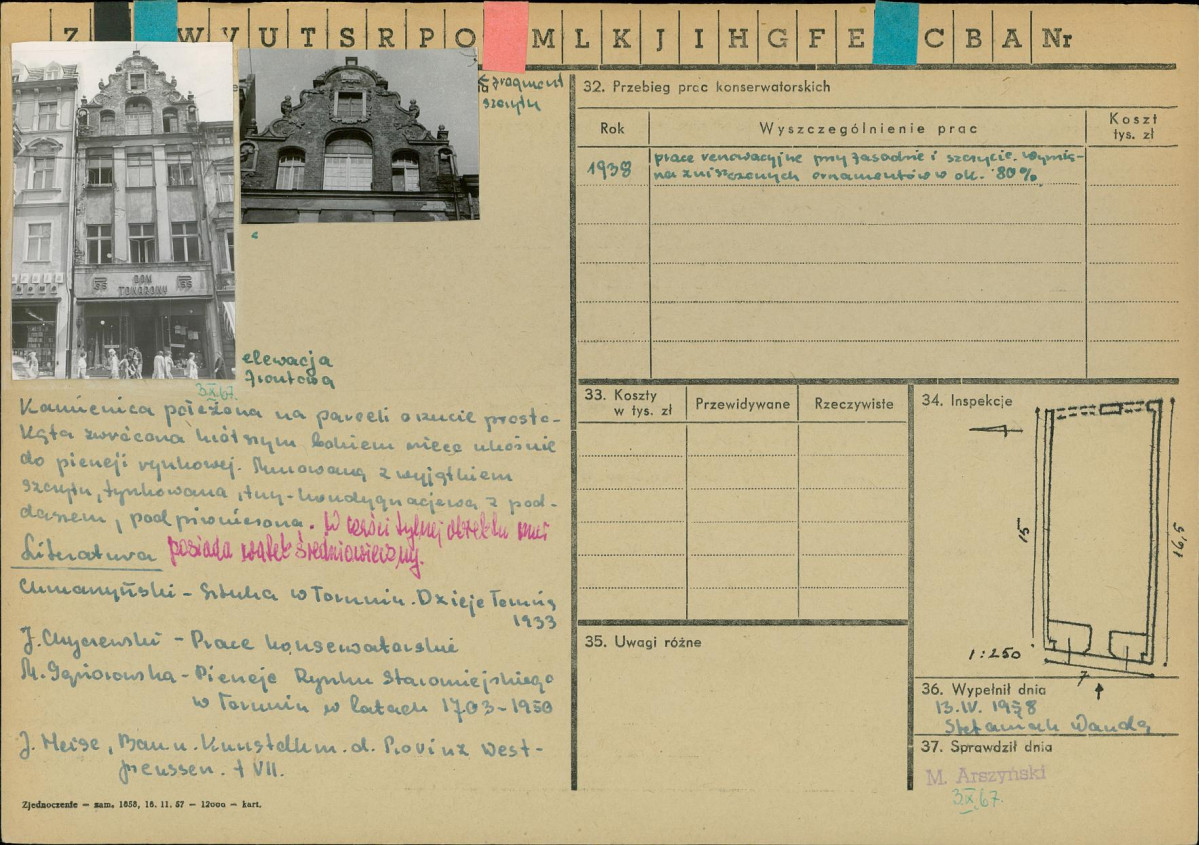 Z W V U T S R P O M L K J I H G F E C B A Nr
fragment
szczytu
DOM
TOWAROWY
elewacja
frontowa
3.IX.67.
Kamienica położona na parceli o rzucie prosto-
kąta zwrócona krótszym bokiem nieco ukośnie
do pierzeji rynkowej. Murowana z wyjątkiem
szczytu, tynkowana, trzy-kondygnacjowa z pod-
daszem, podpiwniczona. W części tylnej obiektu mur
posiada wątek średniowieczny.
Literatura
Chmarzyński - Sztuka w Toruniu. Dzieje Torunia
1933
J. Chyczewski - Prace konserwatorskie
M. Gąsiorowska - Pierzeje Rynku Staromiejskiego
w Toruniu w latach 1703-1950
J. Heise, Bau u. Kunstdkm. d. Provinz West-
preussen. t VII.
Zjednoczenie — zam. 1858, 18. 11. 57 — 12000 — kart.
32. Przebieg prac konserwatorskich
Rok Wyszczególnienie prac Koszt tys. zł
1938 prace renowacyjne przy fasadzie i szczycie. Wymia-
na zniszczonych ornamentów w ok. 80%
33. Koszty w tys. zł Przewidywane Rzeczywiste
34. Inspekcje
15
16,5
1:250
7
35. Uwagi różne
36. Wypełnił dnia
13.IV. 1958
Stefaniak Wanda
37. Sprawdził dnia
M. Arszyński
3.IX.67.